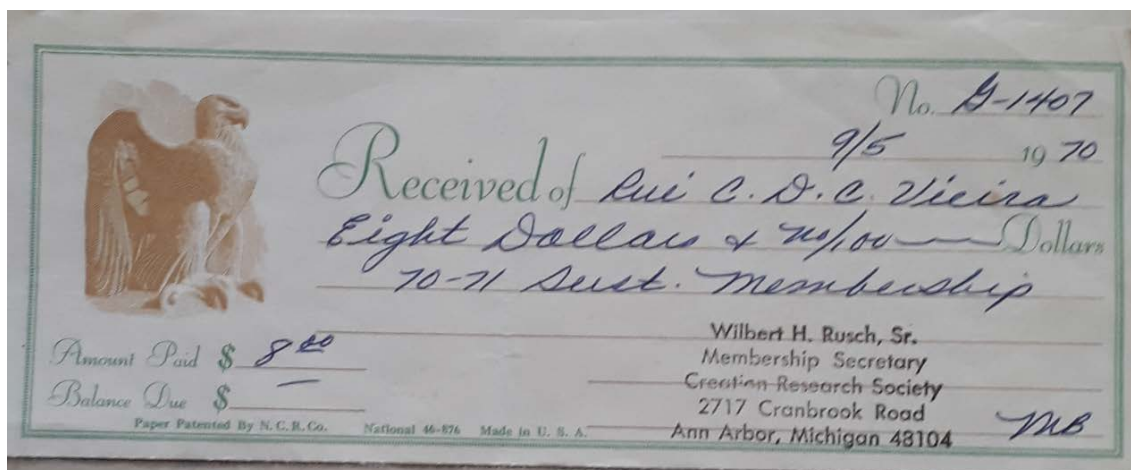 No. G-1407
9/5 19 70
Received of Rui C. D. C. Vieira
Eight Dollars & no/100 — Dollars
70-71 Sust. Membership
Amount Paid $ 8 00
Balance Due $ —
Wilbert H. Rusch, Sr.
Membership Secretary
Creation Research Society
2717 Cranbrook Road
Ann Arbor, Michigan 48104
MB
Paper Patented By N.C.R.Co. National 46-876 Made in U.S.A.